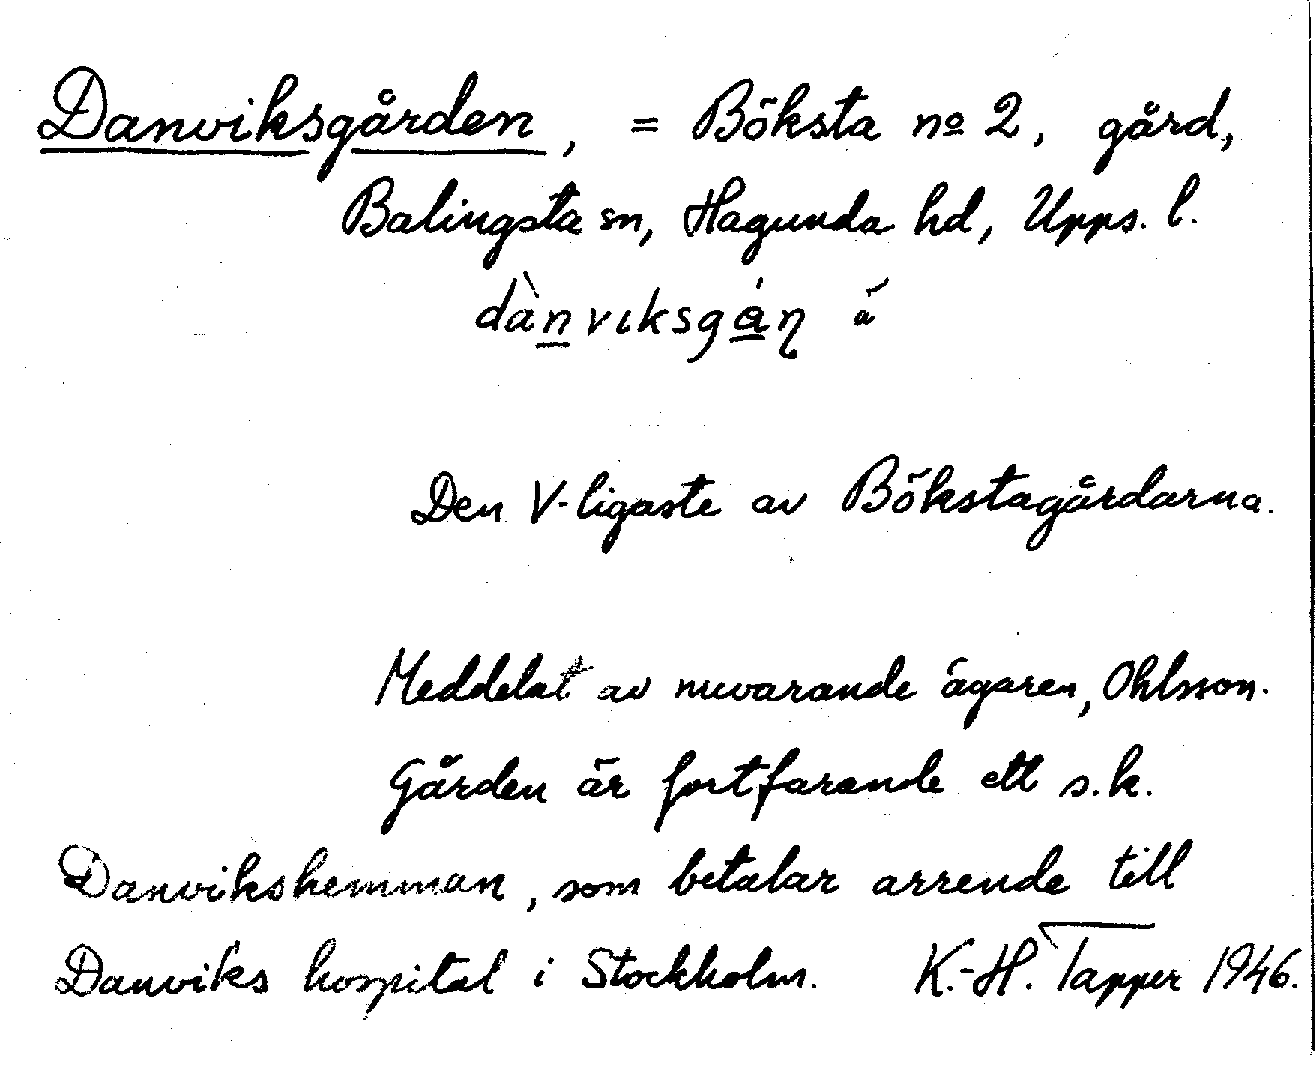 Danviksgården, = Böksta nº 2, gård,
Balingsta sn, Hagunda hd, Upps. l.
dànviksgạ̊n ǎ
Den V-ligaste av Bökstagårdarna.
Meddelat av nuvarande ägaren, Ohlsson.
Gården är fortfarande ett s.k.
Danvikshemman, som betalar arrende till
Danviks hospital i Stockholm. K.-H. Tapper 1946.